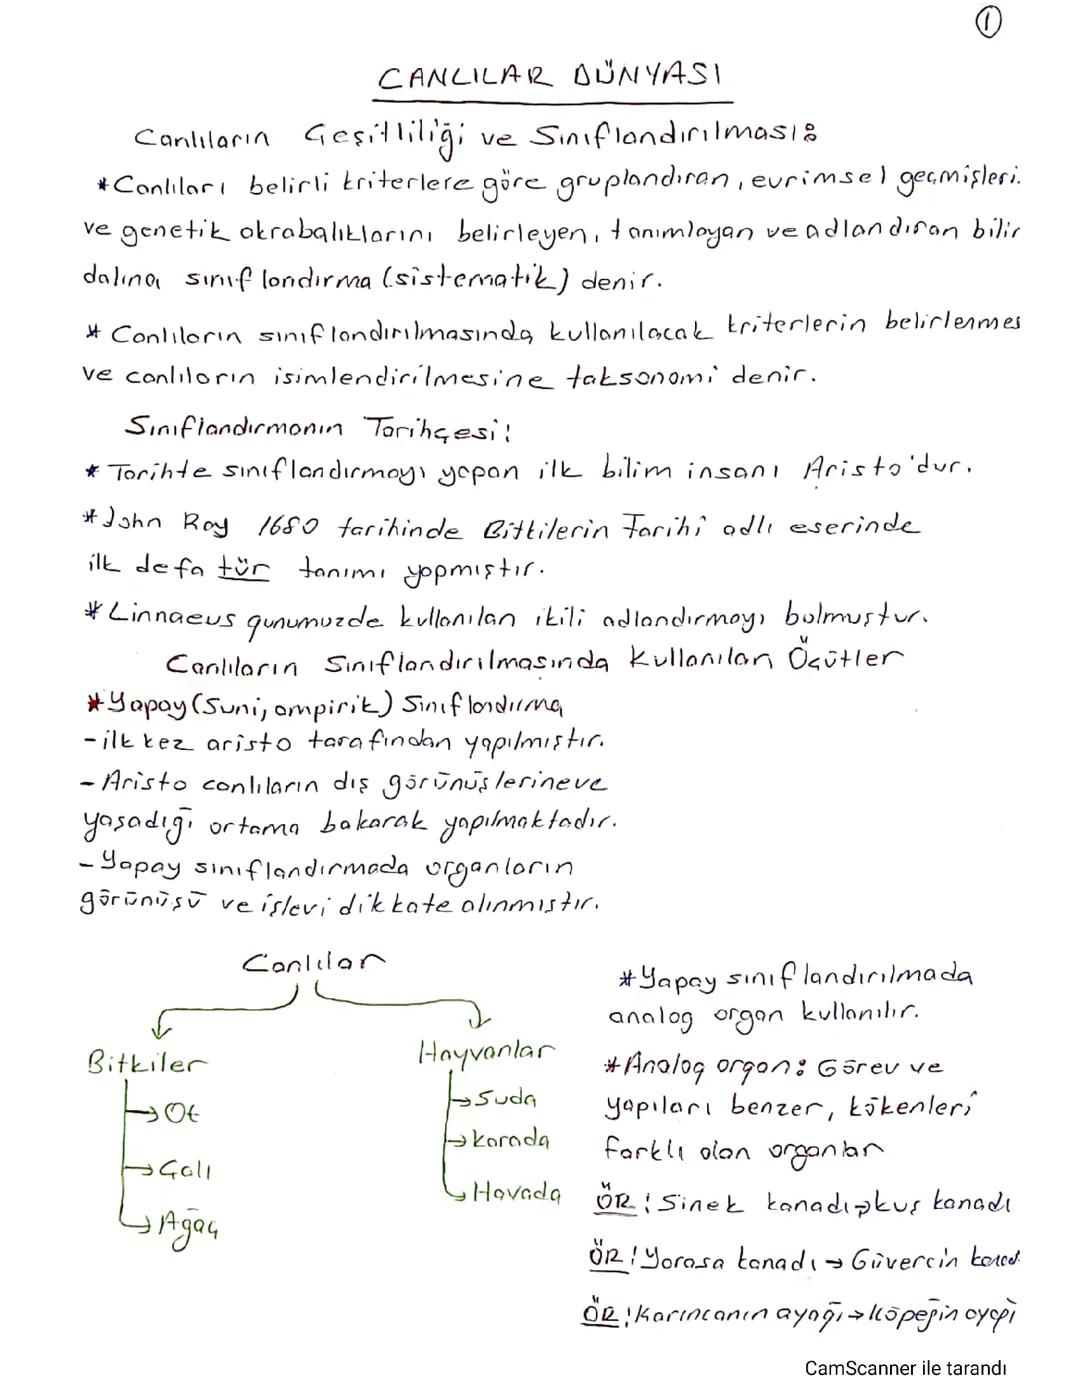 1
CANLILAR DÜNYASI
Canlıların Çeşitliliği ve Sınıflandırılması:
*Canlıları belirli kriterlere göre gruplandıran, evrimsel geçmişleri
ve genetik akrabalıklarını belirleyen, tanımlayan ve adlandıran bilir
dalına sınıflandırma (sistematik) denir.
* Canlıların sınıflandırılmasında kullanılacak kriterlerin belirlenmes
ve canlıların isimlendirilmesine taksonomi denir.
Sınıflandırmanın Tarihçesi:
* Tarihte sınıflandırmayı yapan ilk bilim insanı Aristo'dur.
* John Ray 1680 tarihinde Bitkilerin Tarihi adlı eserinde
ilk defa tür tanımı yapmıştır.
* Linnaeus günümüzde kullanılan ikili adlandırmayı bulmuştur.
Canlıların Sınıflandırılmasında Kullanılan Ölçütler
*Yapay (Suni, ampirik) Sınıflandırma
-ilk kez aristo tarafından yapılmıştır.
- Aristo canlıların dış görünüşlerine ve
yaşadığı ortama bakarak yapılmaktadır.
- Yapay sınıflandırmada organların
görünüşü ve işlevi dikkate alınmıştır.
Canlılar
Bitkiler
→Ot
→Çalı
→Ağaç
Hayvanlar
→Suda
→karada
→Havada
*Yapay sınıflandırılmada
analog organ kullanılır.
*Analog organ: Görev ve
yapıları benzer, kökenleri
farklı olan organlar
ÖR: Sinek kanadı→kuş kanadı
ÖR: Yarasa kanadı → Güvercin kanad
ÖR: Karıncanın ayağı → Köpeğin ayağı
CamScanner ile tarandı